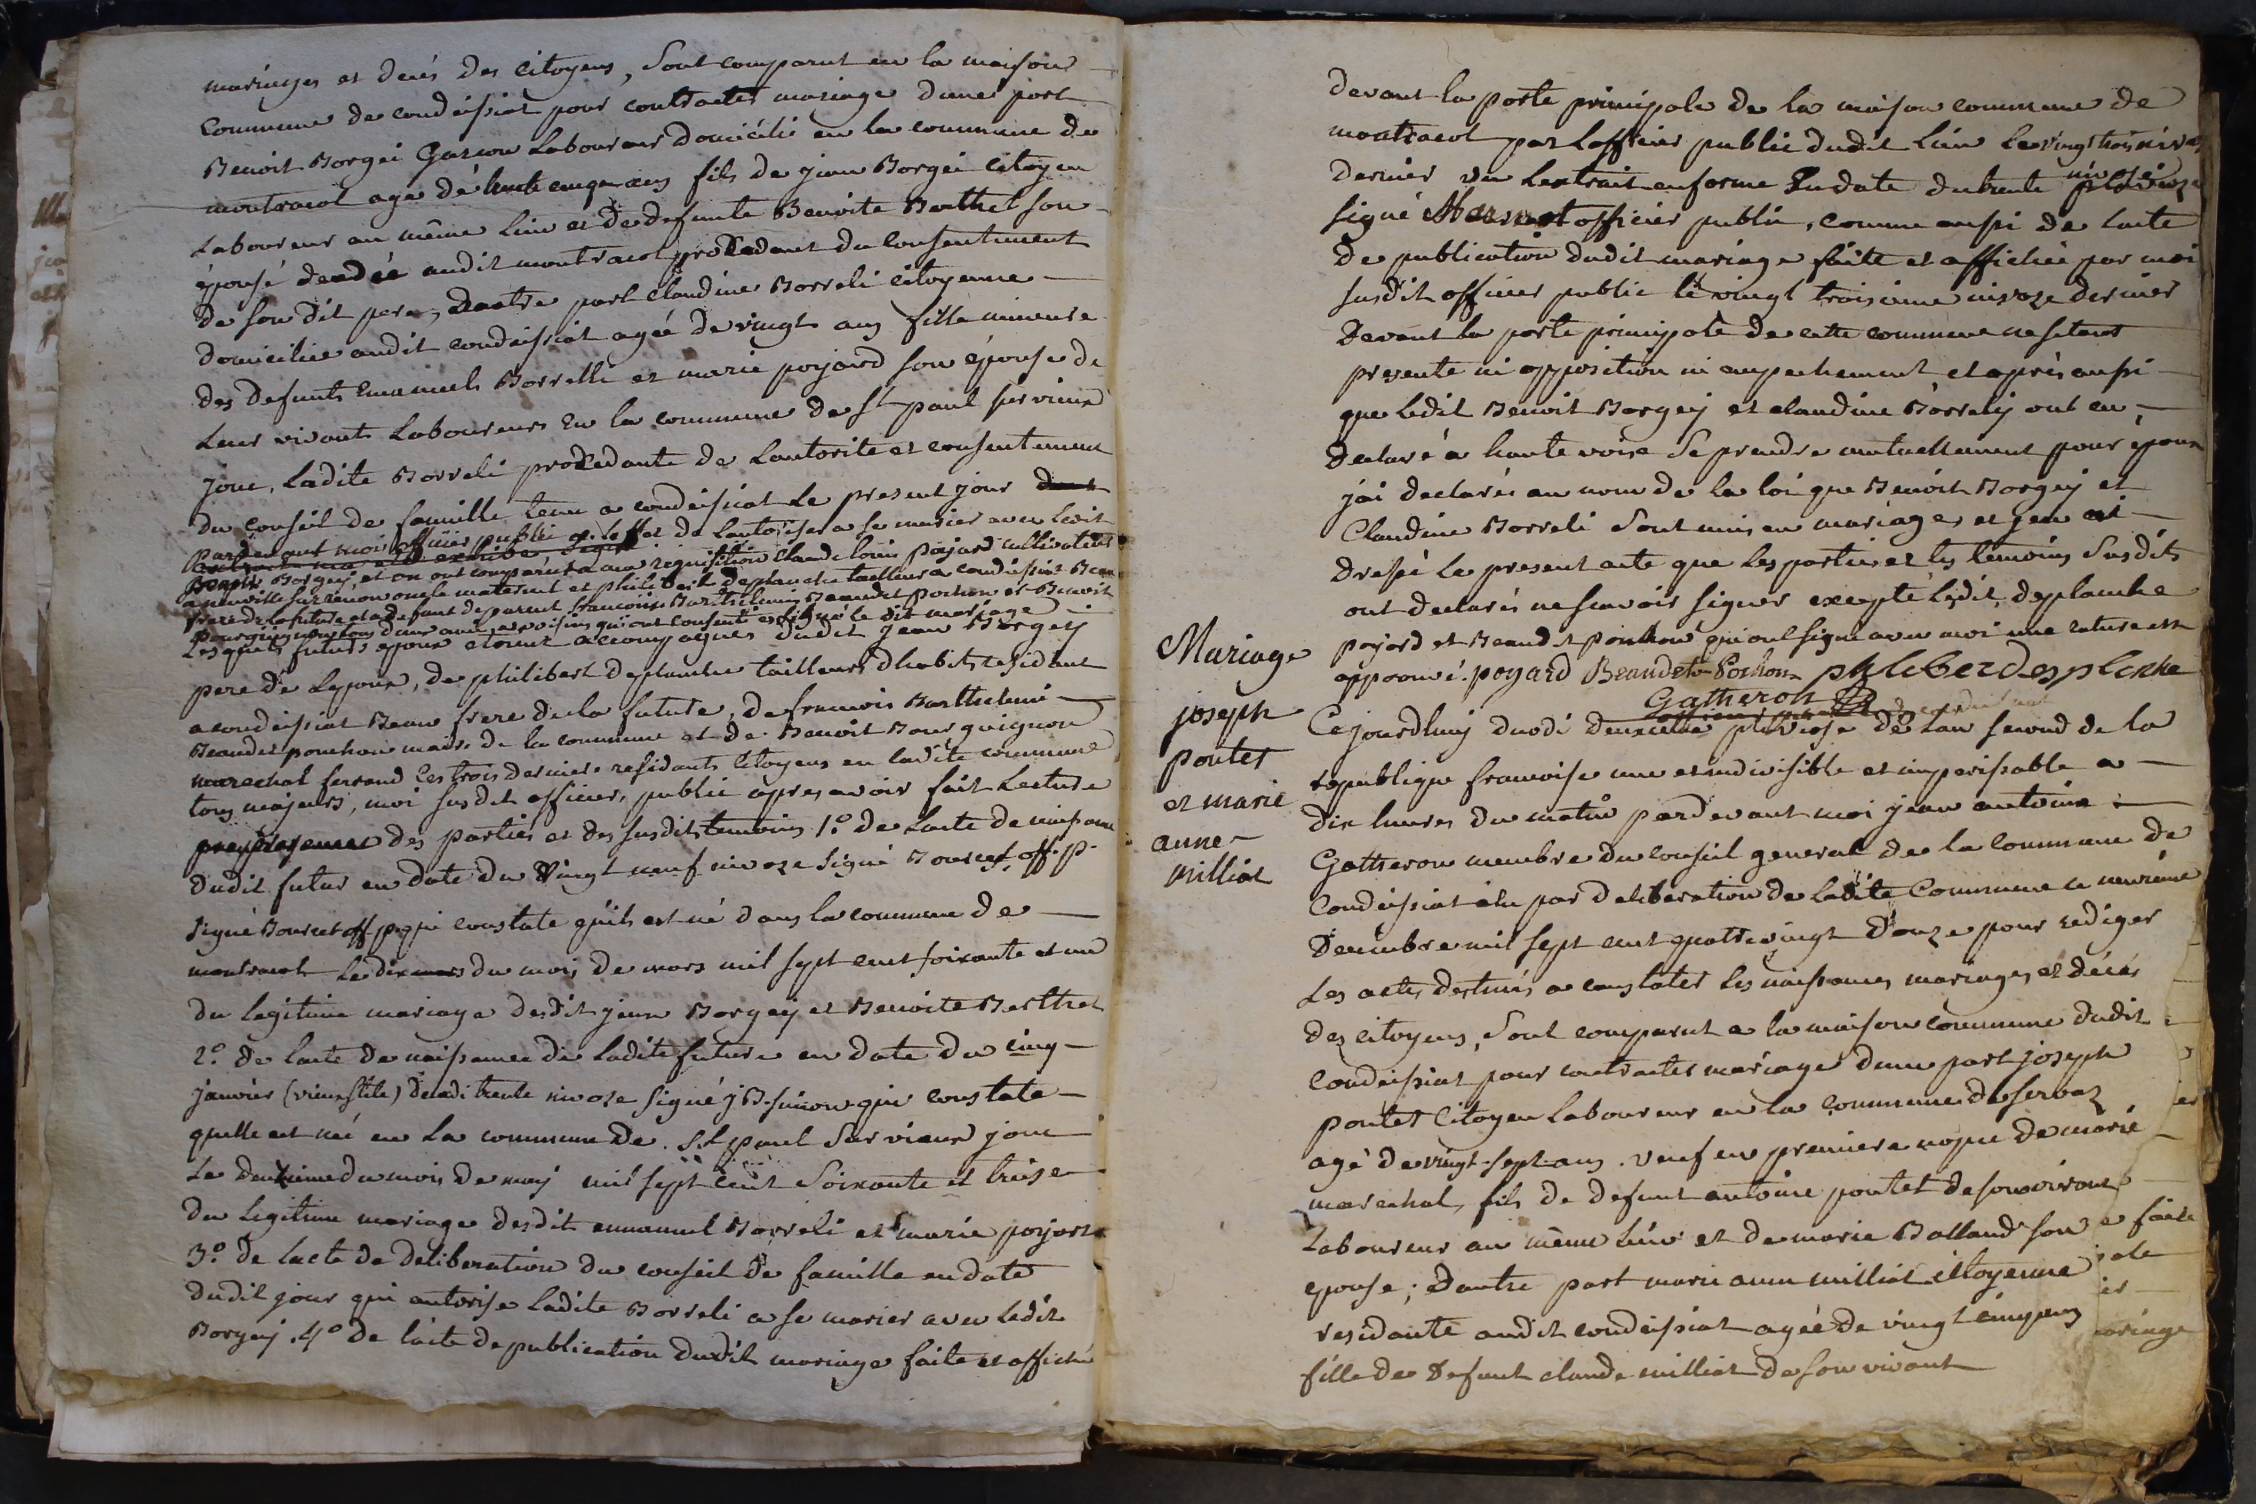 mariages et decés des citoyens, sont comparut en la maison
Commune de condeissiat pour contracter mariage dune part
Benoit Borgei Garcon Laboureur domicilié en la commune de
montracol agé de trente cinq ans fils de jean Borgei citoyen
Laboureur au même lieu et de defunte Benoite Berthet son
épousé audit montracol procedant du consentement
dé son dit pere, dautre part claudine Borreli citoyenne
domiciliée audit condeissiat agée de vingt ans fille mineure
des defunts Emanuel Borrelli et marie poyard son épouse de
Leur vivants Laboureurs en la commune de St paul sur vieux
jonc, Ladite Borreli procedante de Lautorite et consentement
du conseil de famille tenu a condeissiat le present jour
pardevant moi officier public a leffet de Lautoriser a se marier avec ledit
Benoit Borgeij, et on ont comparut a ma requisition claude louis poyard cultivateur
a neuville sur renon oncle maternel et philibert deplanche tailleur a condeissiat Beau
frere de la future et a defaut de parent francois Barthelemi Beaudet pochon et Benoit
Bourguignon tous deux amis et voisins qui ont consenti et signé le dit mariage
Lesquels futurs epoux etoient accompagnés dudit jean Borgeij
pere de Lepoux, de philibert deplanche tailleur dhabits residant
a condeissiat Beau frere de la future, de francois Barthelemi
Beaudet pouchon maire de la commune et de Benoit Bourguignon
marechal ferrand Les trois derniers residants citoyens en ladite commune
tous majeurs, moi susdit officier public apres avoir fait Lecture
en presence des parties et des susdits temoins 1.º de Lacte de naissance
dudit futur en date du vingt neuf nivoze signé Bourcet off. p.
signé Bourcet off p. qui constate quils est né dans la commune de
montracol le dix du mois de mars mil sept cent soixante et un
du Legitime mariage desdit jean Borgeij et Benoite Berthet
2.º de Lacte de naissance de Ladite future en date du cinq
janvier (vieux stile) decadi trente nivose signé j B. simon qui constate
quelle est né en La commune de St paul sur vieux jonc
Le deuxieme du mois de maij mil sept cent soixante et treise
du Legitime mariage desdits emmanuel Borreli et marie poyard
3.º de Lacte de deliberation du conseil de famille en date
dudit jour qui autorise Ladite Borreli a se marier avec ledit
Borgeij. 4º de lacte de publication dudit mariage faite et affichée
devant la porte principale de la maison commune de
montracol par Lofficier public dudit Lieu Le vingt trois nivoze
dernier vu Lextrait en forme en date du trente nivose
signé officier public, comme aussi de Lacte
de publication dudit mariage faite et affichée par moi
susdit officier public le vingt troisieme nivoze dernier
devant la porte principale de cette commune ne setant
presenté ni opposition ni empechement, et après aussi
que ledit Benoit Borgeij et claudine Borrelij ont eu
declaré a haute voix se prendre mutuellement pour époux
jai declarés au nom de la loi que Benoit Borgeij et
Claudine Borreli sont unis en mariage et jen ai
dressé le present acte que les parties et les temoins susdits
ont declarés ne scavoir signer excepté ledit deplanche
poyard et Beaudet pouchon qui ont signé avec moi une rature est
approuvé. poyard Beaudet Pochon philiberdesplenche
Gatheron
Mariage
joseph
pontet
et marie
anne
milliat
Cejourdhuij duodi deuxieme pluviose de Lan second de la
republique francoise une et indivisible et imperissable a
dix heures du matin pardevant moi jean antoine
Gatheron membre du conseil general de la commune de
Condeissiat élu par deliberation de Ladite Commune le neuvieme
Decembre mil sept cent quatrevingt douze pour rediger
Les actes destinés a constater les naissances mariages et décés
des citoyens, sont comparut a la maison commune dudit
condeissiat pour contracter mariage dune part joseph
pontet Citoyen Laboureur en la commune de servaz
agé de vingt-sept ans. veuf en premiere nopce de marie
marechal, fils de defunt antoine pontet de son vivant
Laboureur au même Lieu et de marie Balland son
epouse; dautre part marie anne milliat citoyenne
residante audit condeissiat agée de vingt cinq ans
fille de defunt claude milliat de son vivant